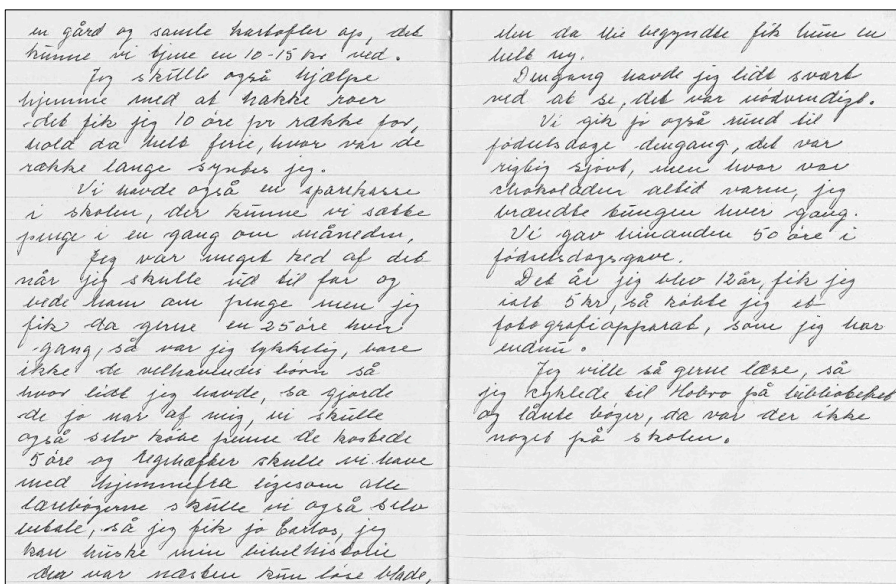 en gård og samle kartofler op, det
kunne vi tjene en 10-15 kr ved.
Jeg skulle også hjælpe
hjemme med at hakke roer
det fik jeg 10 øre pr række for,
hold da helt ferie, hvor var de
række lange syntes jeg.
Vi havde også en sparekasse
i skolen, der kunne vi sætte
penge i en gang om måneden,
Jeg var meget ked af det
når jeg skulle ud til far og
bede ham om penge men jeg
fik da gerne en 25 øre hver
gang, så var jeg lykkelig, bare
ikke de velhavendes børn så
hvor lidt jeg havde, så gjorde
de jo nar af mig, vi skulle
også selv købe penne de kostede
5 øre og regnhæfter skulle vi have
med hjemmefra ligesom alle
lærebøgerne skulle vi også selv
betale, så jeg fik jo Carlos, jeg
kan huske min bibelhistorie
der var næsten kun løse blade,
men da Mie begyndte fik hun en
helt ny.
Dengang havde jeg lidt svært
ved at se, det var nødvendigt.
Vi gik jo også rund til
fødselsdage dengang, det var
rigtig sjovt, men hvor var
chokoladen altid varm, jeg
brændte tungen hver gang.
Vi gav hinanden 50 øre i
fødselsdagsgave.
Det år jeg blev 12 år, fik jeg
ialt 5 kr, så købte jeg et
fotografiapparat, som jeg har
endnu.
Jeg ville så gerne læse, så
jeg cyklede til Hobro på biblioteket
og lånte bøger, da var der ikke
noget på skolen.